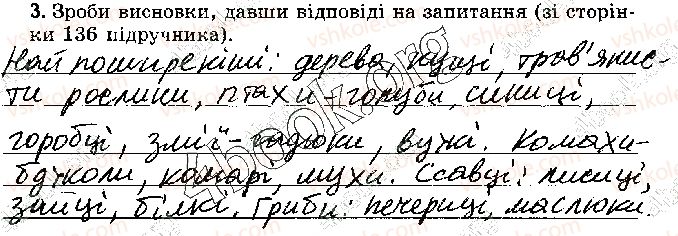 3. Зроби висновки, давши відповіді на запитання (зі сторін-
ки 136 підручника).
Найпоширеніші: дерева, кущі, трав'янис-
ти рослини, птахи - голуби, синиці,
горобці, змії - гадюки, вужі. Комахи-
бджоли, комарі, мухи. Ссавці: лисиці,
зайці, білкі. Гриби: печериці, маслюки.